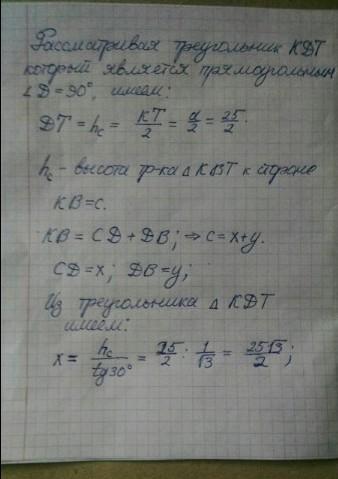 Рассматривая треугольник KDT
который является прямоугольным
∠D = 90°, имеем:
DT = h_c = KT/2 = d/2 = 25/2.
h_c - высота тр-ка △KBT к стороне
KB = c.
KB = CD + DB; ⇒ c = x + y.
CD = x; DB = y;
Из треугольника △ KDT
имеем:
x = h_c/tg 30° = 25/2 : 1/√3 = 25√3/2;